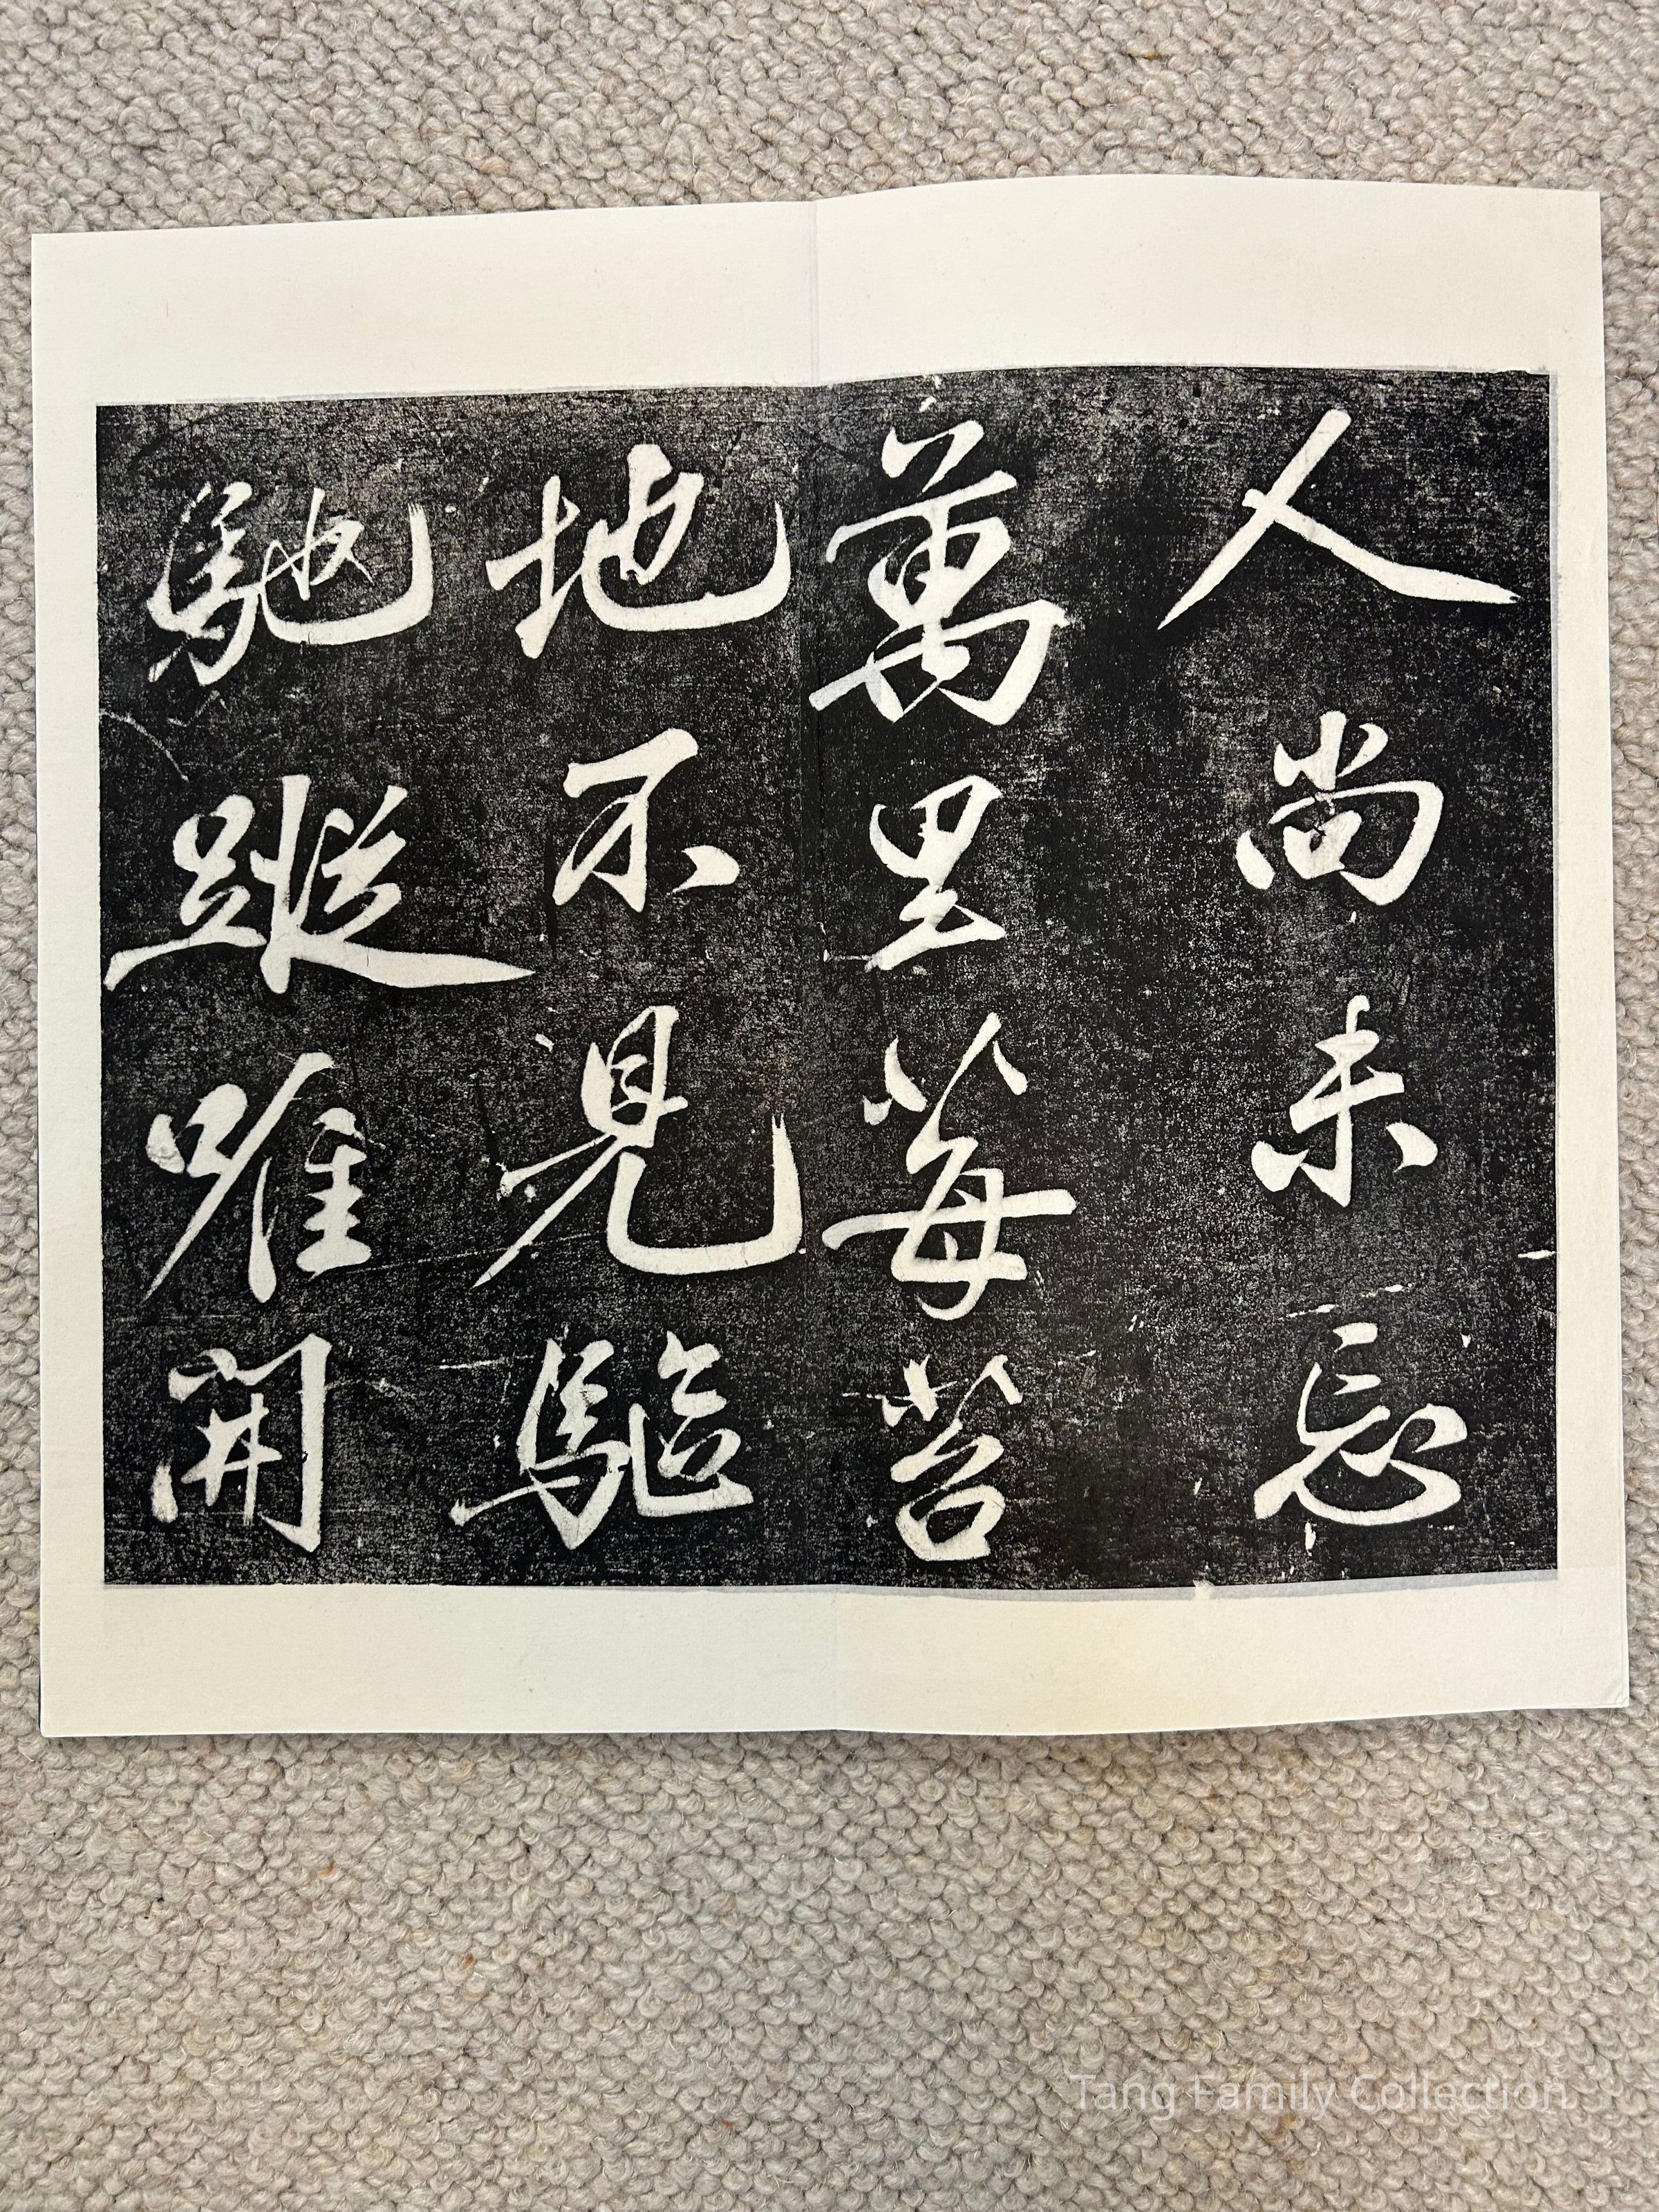 人尚未忘
萬里莓苔
地不見驅
馳蹤唯開
Tang Family Collection